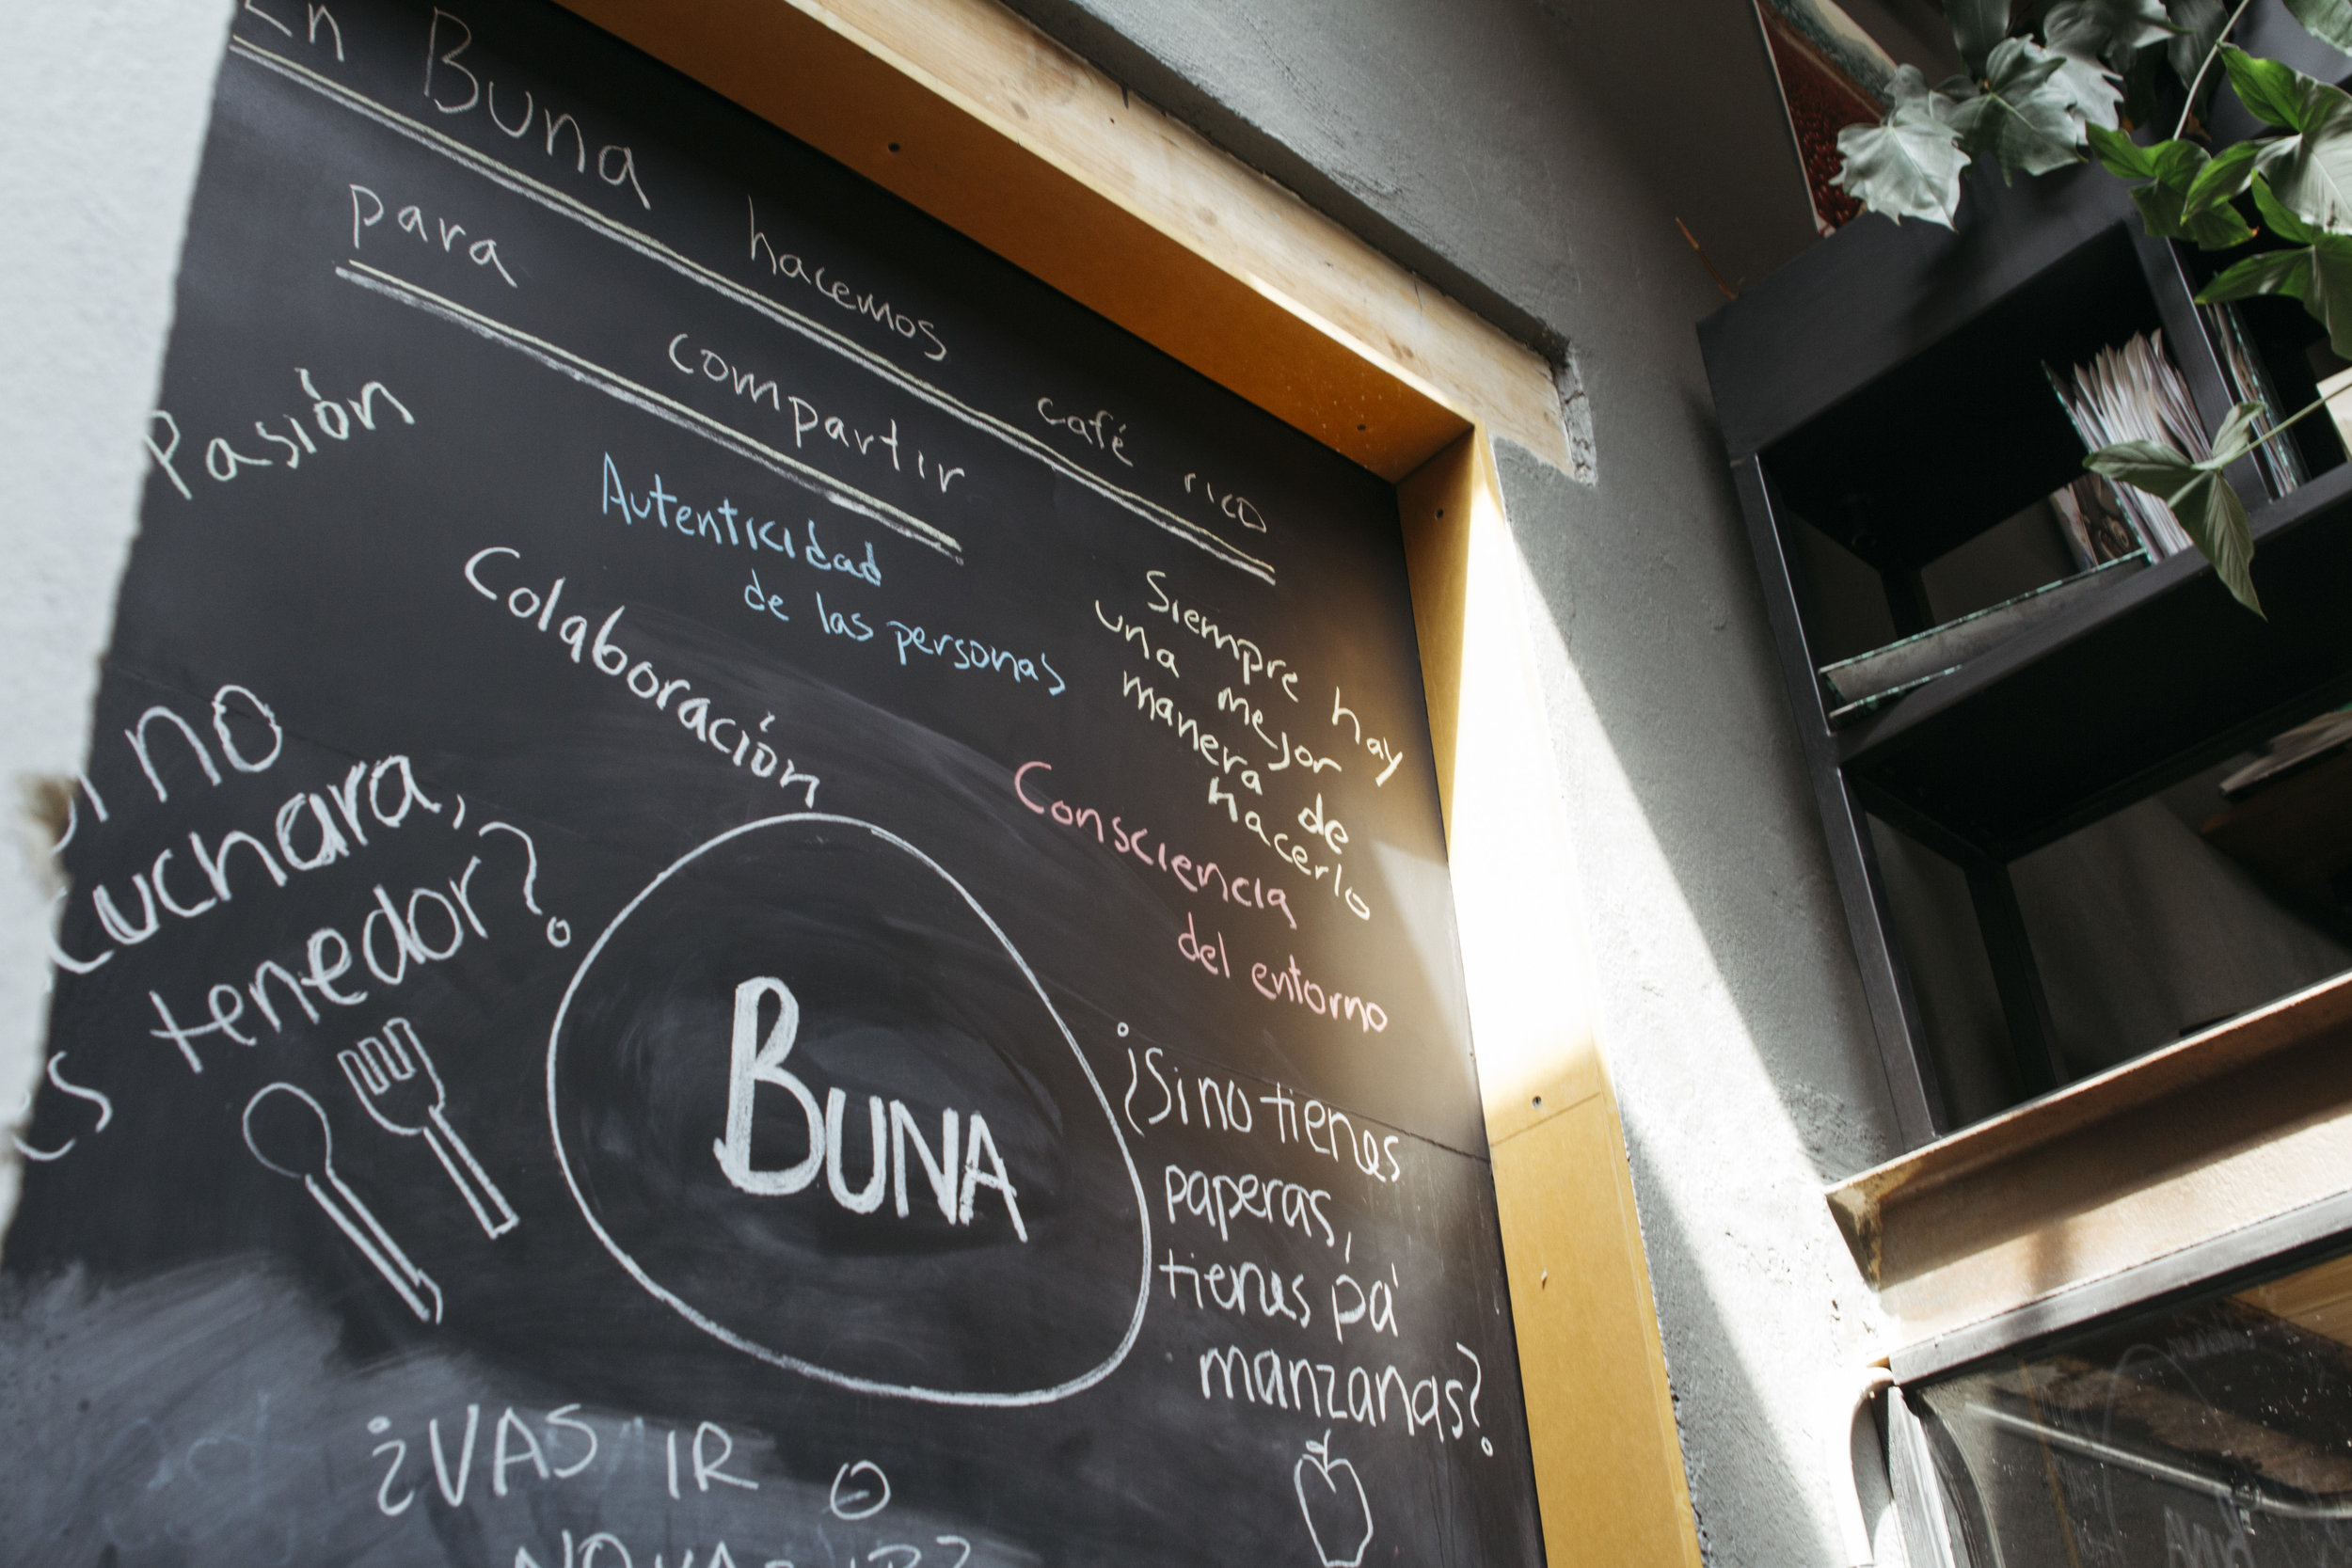 En Buna hacemos café rico
para compartir
Pasión
Autenticidad
de las personas
Colaboración
Siempre hay
una mejor
manera de
hacerlo
Consciencia
del entorno
no
cuchara,
es tenedor?
BUNA
¿Si no tienes
paperas,
tienes pa'
manzanas?
¿VAS IR O
NO VAS IR?